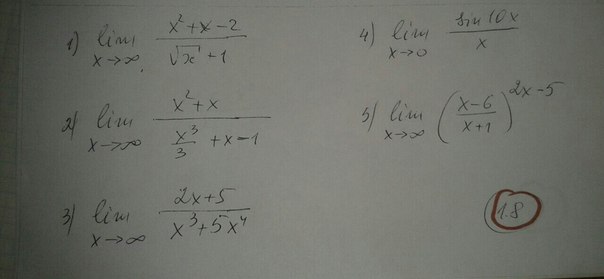 1) lim x→∞ (x² + x − 2) / (√x + 1)
2) lim x→∞ (x² + x) / (x³/3 + x − 1)
3) lim x→∞ (2x + 5) / (x³ + 5x⁴)
4) lim x→0 sin 10x / x
5) lim x→∞ ((x − 6) / (x + 1))^(2x − 5)
1.8